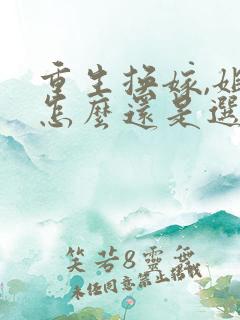 重生換嫁,姐
怎麼還是選
笑若8靈舞
未任同意禁止搭載